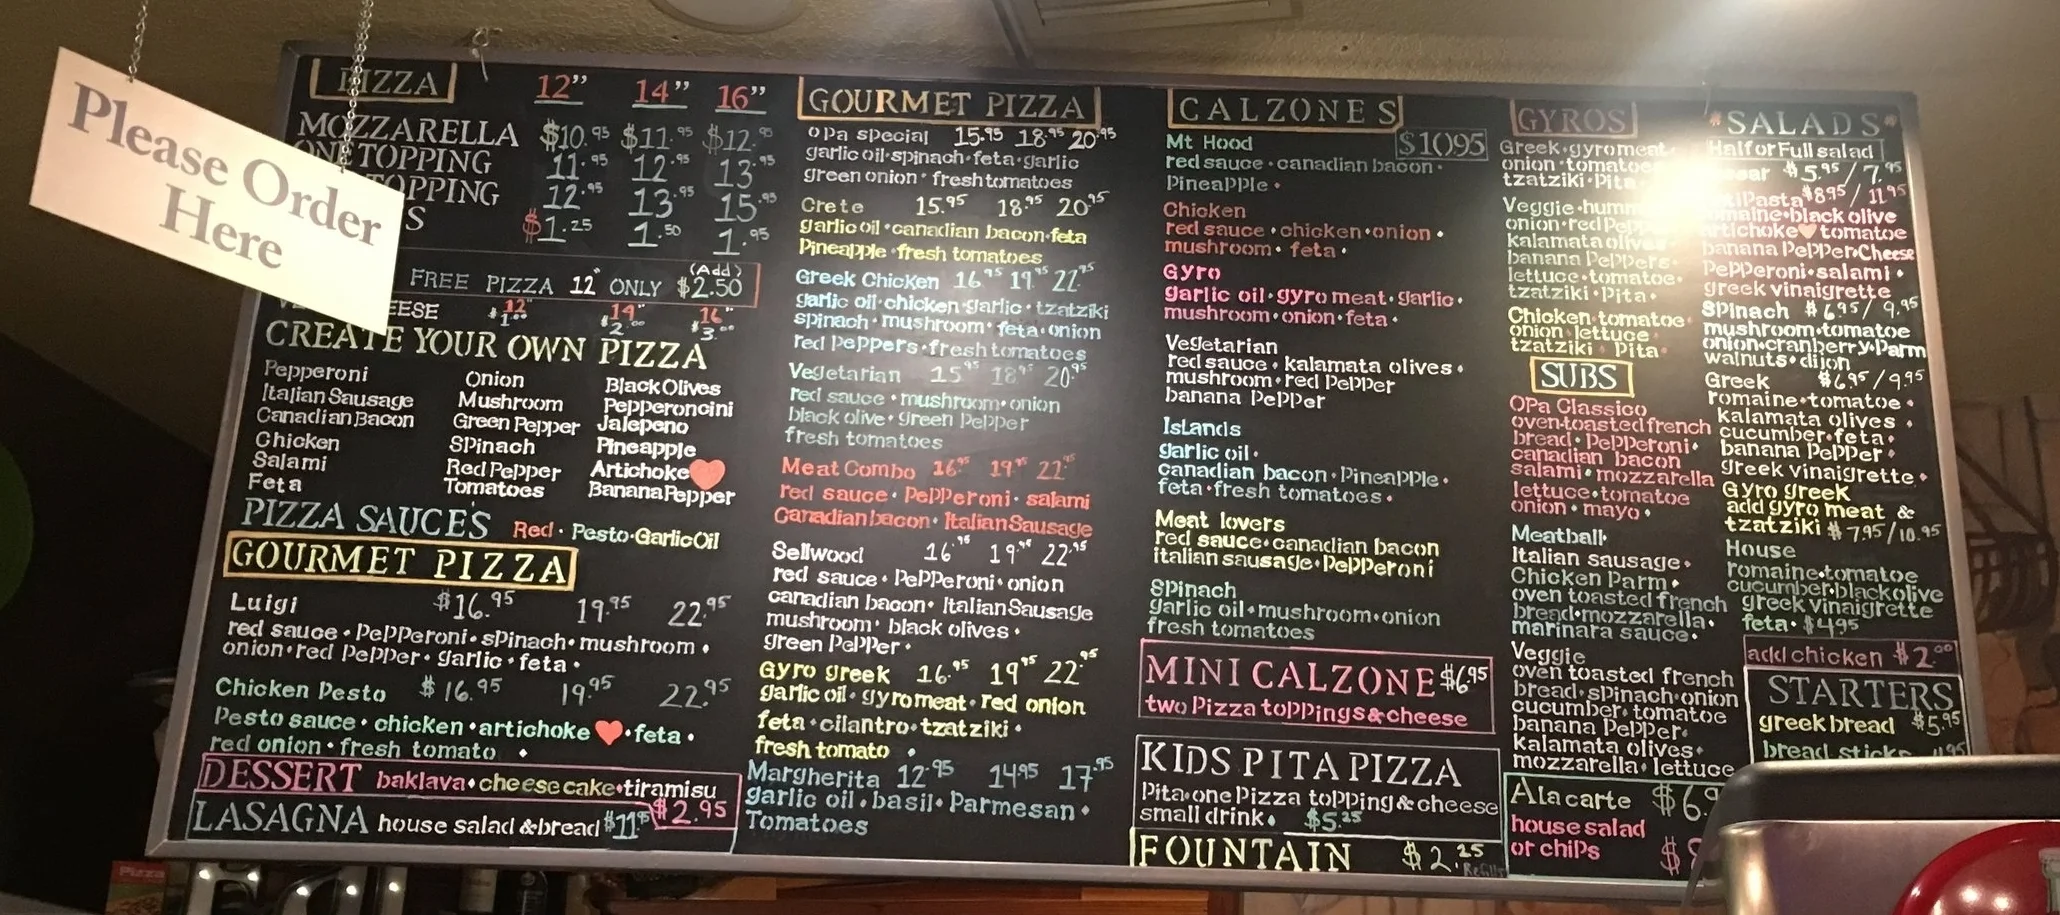 Please Order
Here
PIZZA 12” 14” 16”
MOZZARELLA $10.95 $11.95 $12.95
ONE TOPPING 11.95 12.95 13.95
TOPPING 12.95 13.95 15.95
$1.25 1.50 1.95
FREE PIZZA 12" ONLY (Add) $2.50
12" 14" 16"
$1.00 $2.00 $3.00
CREATE YOUR OWN PIZZA
Pepperoni Onion Black Olives
Italian Sausage Mushroom Pepperoncini
Canadian Bacon Green Pepper Jalepeno
Chicken Spinach Pineapple
Salami Red Pepper Artichoke
Feta Tomatoes Banana Pepper
PIZZA SAUCE'S Red · Pesto · Garlic Oil
GOURMET PIZZA
Luigi $16.95 19.95 22.95
red sauce · Pepperoni · spinach · mushroom ·
onion · red Pepper · garlic · feta ·
Chicken Pesto $16.95 19.95 22.95
Pesto sauce · chicken · artichoke ♥ · feta ·
red onion · fresh tomato ·
DESSERT baklava · cheese cake · tiramisu
$2.95
LASAGNA house salad & bread $11.95
GOURMET PIZZA
Opa special 15.95 18.95 20.95
garlic oil · spinach · feta · garlic
green onion · fresh tomatoes
Crete 15.95 18.95 20.95
garlic oil · canadian bacon · feta
Pineapple · fresh tomatoes
Greek Chicken 16.95 19.95 22.95
garlic oil · chicken · garlic · tzatziki
spinach · mushroom · feta · onion
red Peppers · fresh tomatoes
Vegetarian 15.95 18.95 20.95
red sauce · mushroom · onion
black olive · green Pepper
fresh tomatoes
Meat Combo 16.95 19.95 22.95
red sauce · Pepperoni · salami
Canadian bacon · Italian Sausage
Sellwood 16.95 19.95 22.95
red sauce · Pepperoni · onion
canadian bacon · Italian Sausage
mushroom · black olives ·
green Pepper ·
Gyro greek 16.95 19.95 22.95
garlic oil · gyro meat · red onion
feta · cilantro · tzatziki ·
fresh tomato ·
Margherita 12.95 14.95 17.95
garlic oil · basil · Parmesan ·
Tomatoes
CALZONES
$10.95
Mt Hood
red sauce · canadian bacon ·
Pineapple ·
Chicken
red sauce · chicken · onion ·
mushroom · feta ·
Gyro
garlic oil · gyro meat · garlic ·
mushroom · onion · feta ·
Vegetarian
red sauce · kalamata olives ·
mushroom · red Pepper
banana Pepper
Islands
garlic oil ·
canadian bacon · Pineapple ·
feta · fresh tomatoes ·
Meat lovers
red sauce · canadian bacon
italian sausage · Pepperoni
Spinach
garlic oil · mushroom · onion
fresh tomatoes
MINI CALZONE $6.95
two Pizza toppings & cheese
KIDS PITA PIZZA
Pita · one Pizza topping & cheese
small drink · $5.25
FOUNTAIN $2.25
Refills
GYROS
Greek · gyro meat ·
onion · tomatoes
tzatziki · Pita ·
Veggie ·
onion · red
kalamata olives ·
banana Peppers ·
lettuce · tomatoe ·
tzatziki · Pita ·
Chicken · tomatoe
onion · lettuce ·
tzatziki · Pita ·
SUBS
Opa Classico
oven-toasted french
bread · Pepperoni ·
canadian bacon
salami · mozzarella
lettuce · tomatoe
onion · mayo ·
Meatball ·
Italian sausage ·
Chicken Parm ·
oven toasted french
bread · mozzarella ·
marinara sauce ·
Veggie
oven toasted french
bread · spinach · onion
cucumber · tomatoe
banana Pepper ·
kalamata olives ·
mozzarella · lettuce
Ala carte
house salad
or chips
SALADS
Half or Full salad
$5.95/7.95
Pasta $8.95/11.95
black olive
artichoke ♥ tomatoe
banana Pepper · Cheese
Pepperoni · salami ·
greek vinaigrette
Spinach $6.95/9.95
mushroom · tomatoe
onion · cranberry · Parm
walnuts · dijon
Greek $6.95/9.95
romaine · tomatoe ·
kalamata olives ·
cucumber · feta ·
banana Pepper ·
greek vinaigrette ·
Gyro greek
add gyro meat &
tzatziki $7.95/10.95
House
romaine · tomatoe
cucumber · black olive
greek vinaigrette
feta · $4.95
add chicken $2.00
STARTERS
greek bread $5.95
bread sticks 4.95
Pizza